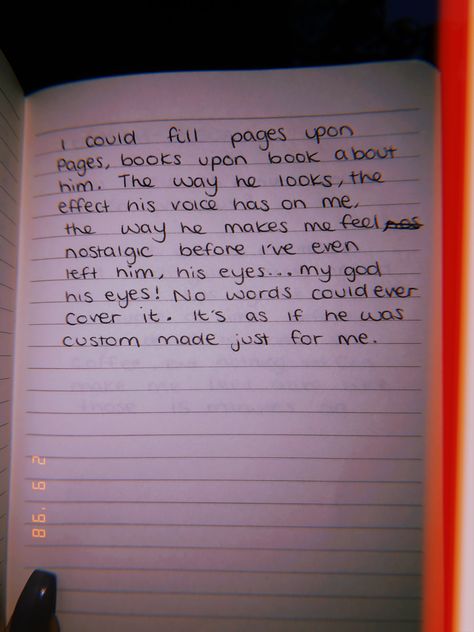 I could fill pages upon
pages, books upon book about
him. The way he looks, the
effect his voice has on me,
the way he makes me feel
nostalgic before I've even
left him, his eyes... my god
his eyes! No words could ever
cover it. It's as if he was
custom made just for me.
2 9 '98